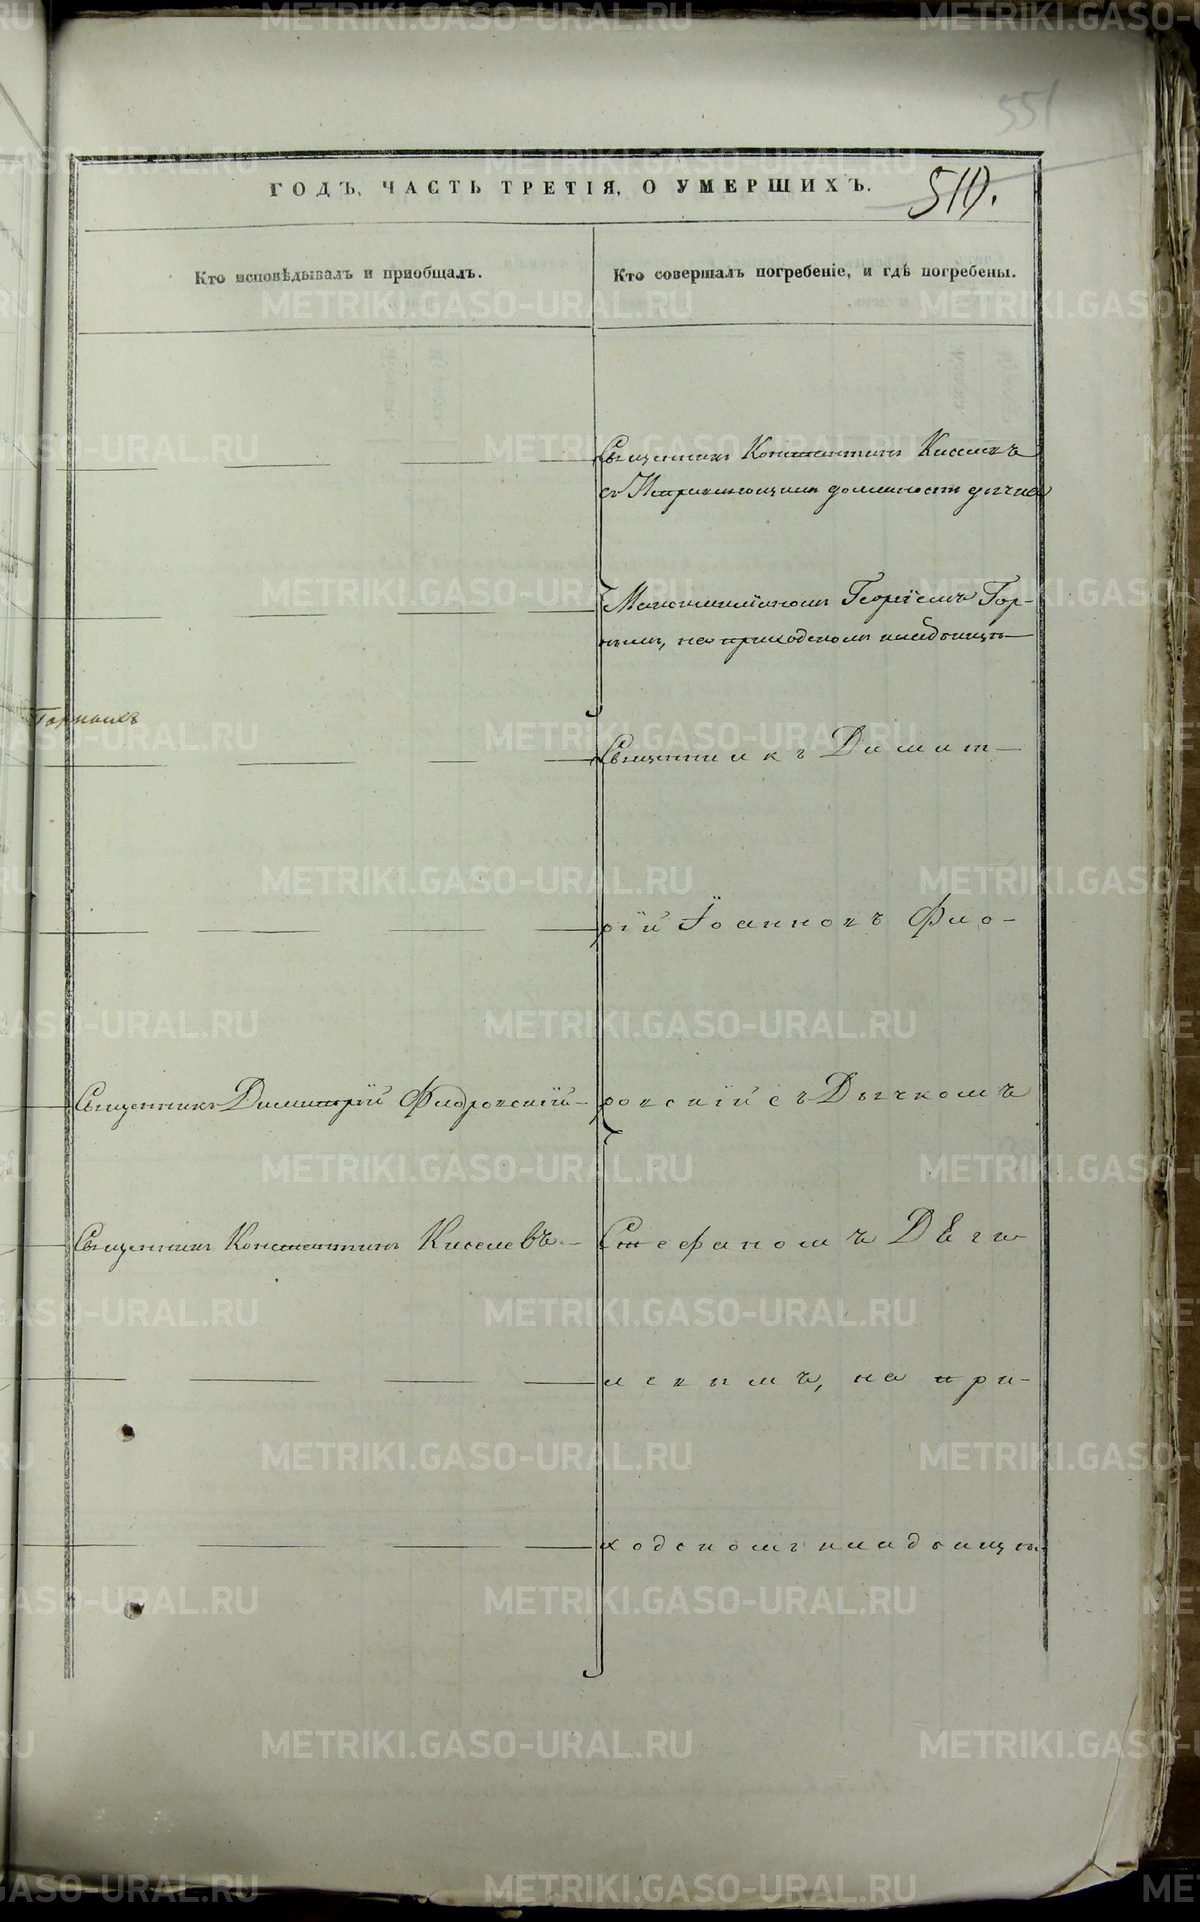 551
ГОДЪ, ЧАСТЬ ТРЕТІЯ, О УМЕРШИХЪ.
510.
Кто исповѣдывалъ и приобщалъ.
Кто совершалъ погребеніе, и гдѣ погребены.
Священникъ Константинъ Киселевъ
съ Исправляющимъ должность дьячка
Максимиліаномъ Георгіемъ Гор-
нымъ, на приходскомъ кладбищѣ
Священникъ Димит-
рій Іоанновъ Фло-
Священникъ Димитрій Флоровскій
ровскій съ Дьячкомъ
Священникъ Константинъ Киселевъ
Стефаномъ Дѣги
левымъ, на при-
ходскомъ кладбищѣ
METRIKI.GASO-URAL.RU